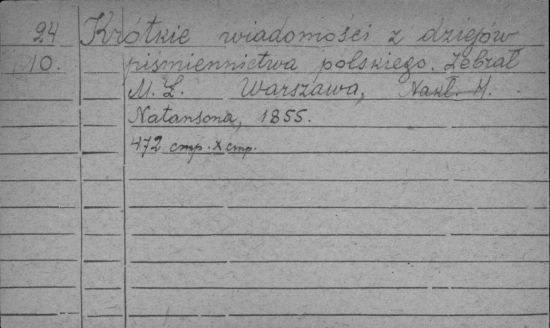 24 Krótkie wiadomości z dziejów
10. piśmiennictwa polskiego. Zebrał
M. Z. Warszawa, Nakł. H.
Natansona, 1855.
472 стр. X стр.